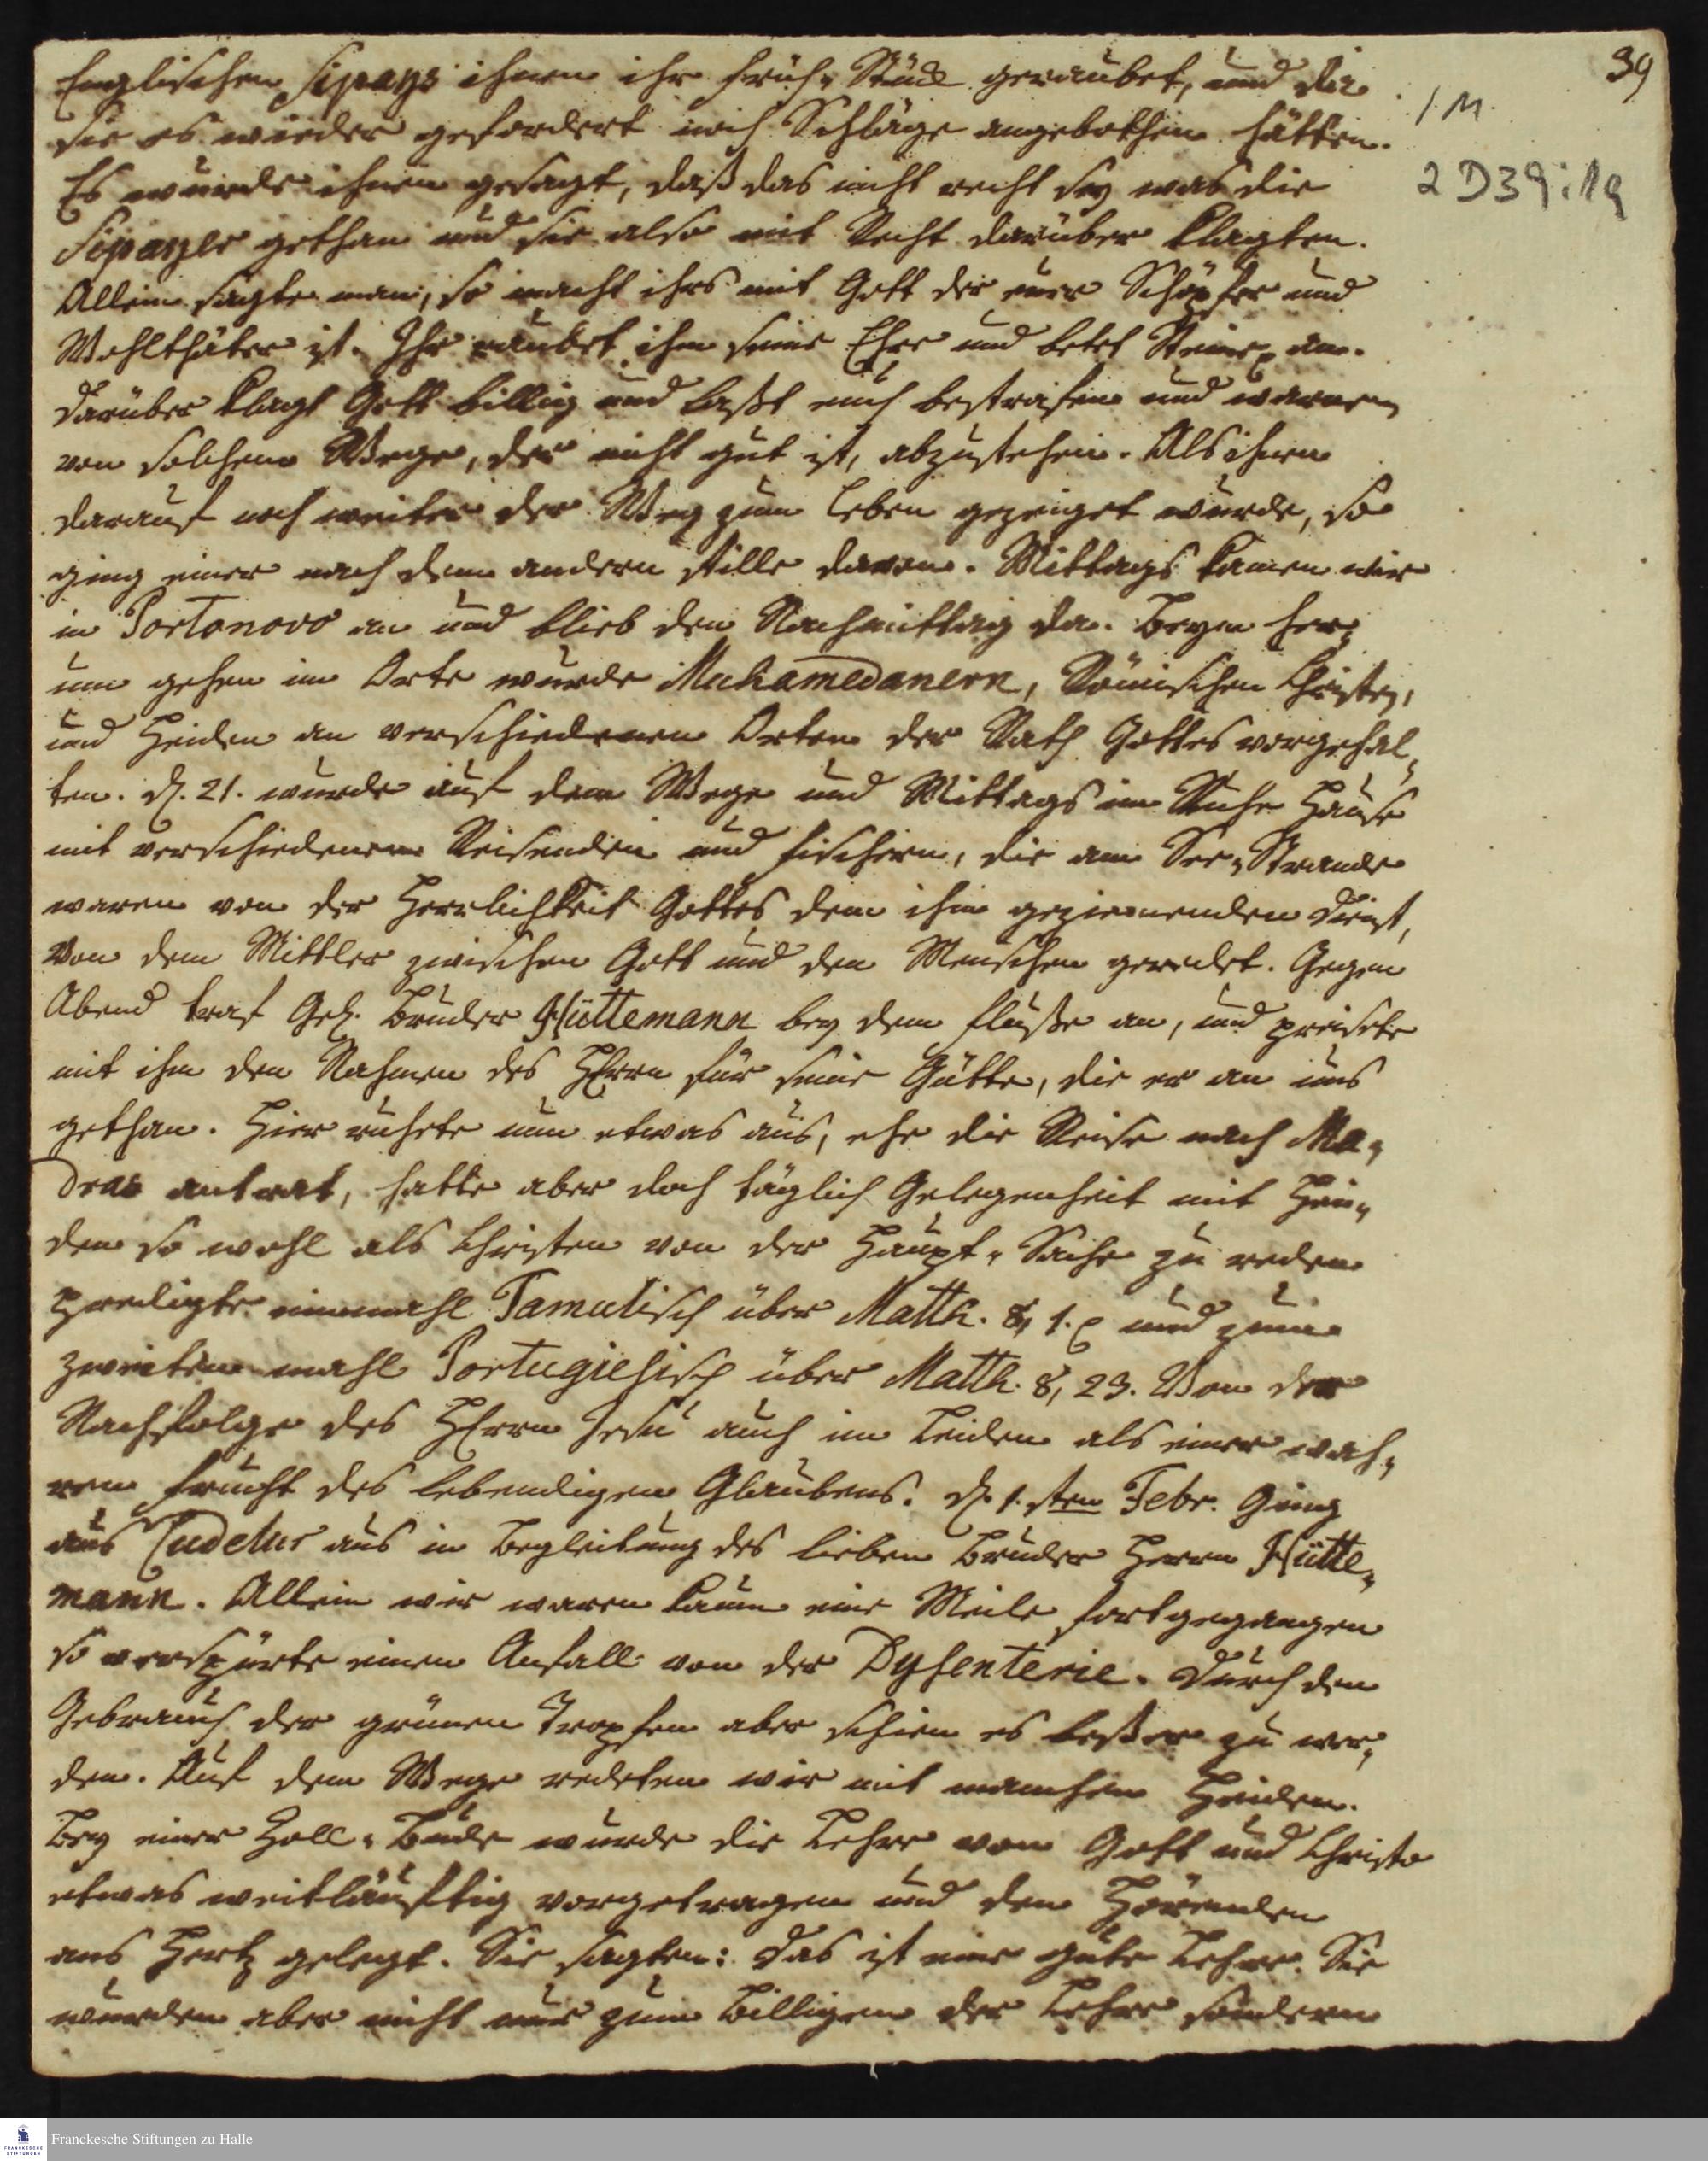 39
1 M
2 D39:19
Englischen Sipays ihnen ihr Früh-Stück geraubet, und die
sie es wieder gefordert noch Schläge angebothen hätten.
Es wurde ihnen gesagt, daß das nicht recht sey was die
Sipayer gethan und sie also mit Recht darüber klagten.
Allein sagte man, so macht ihrs mit Gott der euer Schöpfer und
Wohlthäter ist. Ihr raubet ihm seine Ehre und betet Steine an.
Darüber klagt Gott billig und laßt euch bestrafen und warnen
von solchem Wege, der nicht gut ist, abzustehen. Als ihnen
darauf noch weiter der Weg zum Leben gezeiget wurde, so
ging einer nach dem andern stille davon. Mittags kamen wir
in Portonovo an und blieb den Nachmittag da. Beym her-
um gehen im Orte wurde Muhamedanern, Römischen Christen,
und Heiden an verschiedenen Orten der Rath Gottes vorgehal-
ten. d. 21. wurde auf dem Wege und Mittags im Ruhe Hause
mit verschiedenen Reisenden und Fischern, die am See-Strande
waren von der Herrlichkeit Gottes, dem ihm geziemenden Dienst,
von dem Mittler zwischen Gott und den Menschen geredet. Gegen
Abend traf Gel. Bruder Hüttemann bey dem Fluße an, und preisete
mit ihm den Nahmen des HErrn für seine Gütte, die er an uns
gethan. Hier ruhete nun etwas aus, ehe die Reise nach Ma-
dras antrat, hatte aber doch täglich Gelegenheit mit Hei-
den so wohl als Christen von der Haupt-Sache zu reden
predigte einmahl Tamulisch über Matth. 8, 1. und zum
zweiten mahl Portugiesisch über Matth. 8, 23. Von der
Nachfolge des HErrn Jesu auch im Leiden als einer wah-
ren Frucht des lebendigen Glaubens. d. 1.sten Febr. Ging
aus Cudelur aus in Begleitung des lieben Bruder Herrn Hütte-
mann. Allein wir waren kaum eine Meile fortgegangen
so verspürte einen Anfall von der Dysenterie. Durch den
Gebrauch der grünen Tropfen aber schien es beßer zu wer-
den. Auf dem Wege redeten wir mit manchen Heiden.
Bey einer Zoll-Bude wurde die Lehre von Gott und Christo
etwas weitläuftig vorgetragen und den Hörenden
ans Hertz gelegt. Sie sagten: das ist eine gute Lehre. Sie
wurden aber nicht nur zum Billigen der Lehre sondern
Franckesche Stiftungen zu Halle